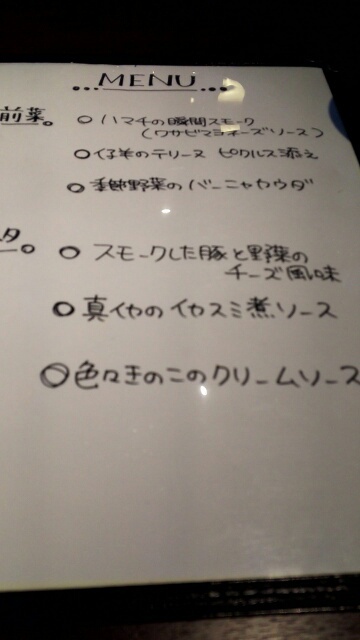 MENU
前菜。
○ ハマチの瞬間スモーク
(ワサビマヨネーズソース)
○ 仔羊のテリーヌ ピクルス添え
○ 季節野菜のバーニャカウダ
タ。
○ スモークした豚と野菜の
チーズ風味
○ 真イカのイカスミ煮ソース
○ 色々きのこのクリームソース